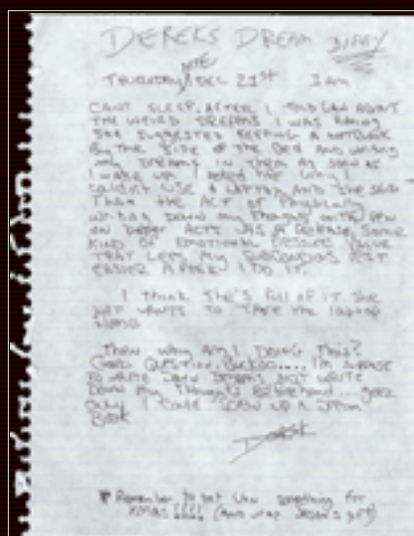 DEREKS DREAM DIARY
THURSDAY NITE DEC 21st 3am
CANT SLEEP. AFTER I TOLD ABOUT
THE WEIRD DREAMS I WAS HAVING
SHE SUGGESTED KEEPING A NOTEBOOK
BY THE SIDE OF THE BED AND WRITING
MY DREAMS IN THEM AS SOON AS
I WAKE UP. I ASKED HER WHY I
COULDN'T USE A LAPTOP AND SHE SAID
THAT THE ACT OF PHYSICALLY
WRITING DOWN MY THOUGHTS WITH PEN
ON PAPER ACTS AS A RELEASE, SOME
KIND OF EMOTIONAL PRESSURE VALVE
THAT LETS MY SUBCONSCIOUS REST
EASIER AFTER I DO IT.
I THINK SHE'S FULL OF IT. SHE
JUST WANTS TO TAKE THE LAPTOP
THEN WHY AM I DOING THIS?
GOOD QUESTION, BUCKOO.... I'M SUPPOSE
TO WRITE DOWN DREAMS NOT WRITE
DOWN MY THOUGHTS BEFOREHAND...GEEZ
ONLY I COULD SCREW UP A DREAM
BOOK
* Remember to get something for
XMAS!!!! (AND WRAP JASON'S GIFT)